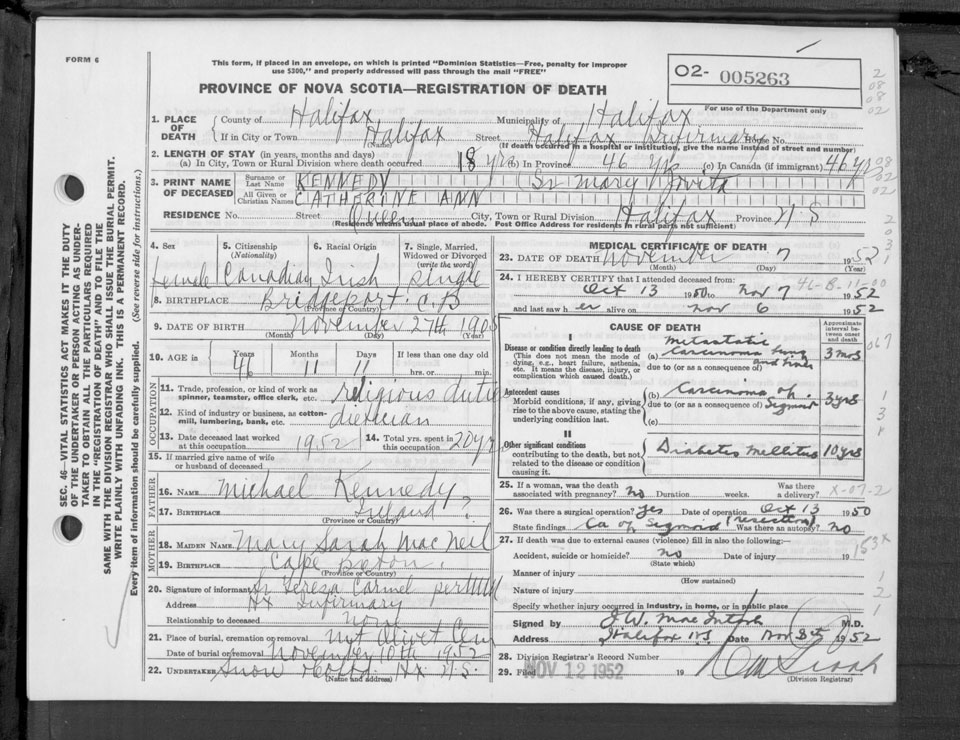 FORM 6
This form, if placed in an envelope, on which is printed "Dominion Statistics—Free, penalty for improper
use $300," and properly addressed will pass through the mail "FREE"
PROVINCE OF NOVA SCOTIA—REGISTRATION OF DEATH
02- 005263
For use of the Department only
1. PLACE OF DEATH { County of Halifax Municipality of Halifax
If in City or Town Halifax Street Halifax Infirmary House No.
(Name) (If death occurred in a hospital or institution, give the name instead of street and number)
2. LENGTH OF STAY (in years, months and days)
(a) In City, Town or Rural Division where death occurred 18 yrs (b) In Province 46 yrs (c) In Canada (if immigrant) 46 yrs
3. PRINT NAME OF DECEASED { Surname or Last Name KENNEDY (Sr Mary Jovita)
All Given or Christian Names CATHERINE ANN
RESIDENCE No. Street Queen City, Town or Rural Division Halifax Province N S
(Residence means usual place of abode. Post Office Address for residents in rural parts not sufficient)
4. Sex 5. Citizenship (Nationality) 6. Racial Origin 7. Single, Married, Widowed or Divorced (write the word)
female Canadian Irish single
8. BIRTHPLACE Bridgeport C.B
9. DATE OF BIRTH November 27th 1905
(Month) (Day) (Year)
10. AGE in Years Months Days If less than one day old
46 11 11 hrs. or min.
OCCUPATION
11. Trade, profession, or kind of work as spinner, teamster, office clerk, etc. religious duties
12. Kind of industry or business, as cotton-mill, lumbering, bank, etc. dietician
13. Date deceased last worked at this occupation 1952 14. Total yrs. spent in this occupation 20 yrs
15. If married give name of wife or husband of deceased
FATHER
16. NAME Michael Kennedy
17. BIRTHPLACE Ireland ?
(Province or Country)
MOTHER
18. MAIDEN NAME Mary Sarah Mac Neil
19. BIRTHPLACE Cape Breton
(Province or Country)
20. Signature of informant Sr Teresa Carmel
Address Hx Infirmary
Relationship to deceased none
21. Place of burial, cremation or removal Mt Olivet Cem
Date of burial or removal November 10th 1952
22. UNDERTAKER Snow & Co Hx N.S.
(Name and address)
MEDICAL CERTIFICATE OF DEATH
23. DATE OF DEATH November 7 1952
(Month) (Day) (Year)
24. I HEREBY CERTIFY that I attended deceased from:
Oct 13 1950 to Nov 7 1952
and last saw her alive on Nov 6 1952
46-8-11-00
CAUSE OF DEATH
Approximate interval between onset and death
I
Disease or condition directly leading to death
(This does not mean the mode of dying, e.g., heart failure, asthenia, etc. It means the disease, injury, or complication which caused death.)
(a) Metastatic carcinoma lung 3 mos
due to (or as a consequence of)
Antecedent causes
Morbid conditions, if any, giving rise to the above cause, stating the underlying condition last.
(b) Carcinoma of Sigmoid 3 yrs
due to (or as a consequence of)
(c)
II
Other significant conditions
contributing to the death, but not related to the disease or condition causing it.
Diabetes Mellitus 10 yrs
25. If a woman, was the death associated with pregnancy? No Duration weeks. Was there a delivery? X-07-2
26. Was there a surgical operation? Yes Date of operation Oct 13 1950
State findings Ca of Sigmoid (resection) Was there an autopsy? No
27. If death was due to external causes (violence) fill in also the following:—
Accident, suicide or homicide? No Date of injury 19
(State which)
Manner of injury
(How sustained)
Nature of injury
Specify whether injury occurred in industry, in home, or in public place
Signed by J.W. MacIntosh M.D.
Address Halifax N S Date Nov 8th 1952
28. Division Registrar's Record Number
29. Filed NOV 12 1952 19
(Division Registrar)
SEC. 46—VITAL STATISTICS ACT MAKES IT THE DUTY
OF THE UNDERTAKER OR PERSON ACTING AS UNDER-
TAKER TO OBTAIN ALL THE PARTICULARS REQUIRED
IN THE "REGISTRATION OF DEATH" AND TO FILE THE
SAME WITH THE DIVISION REGISTRAR WHO SHALL ISSUE THE BURIAL PERMIT.
WRITE PLAINLY WITH UNFADING INK. THIS IS A PERMANENT RECORD.
Every item of information should be carefully supplied. (See reverse side for instructions.)